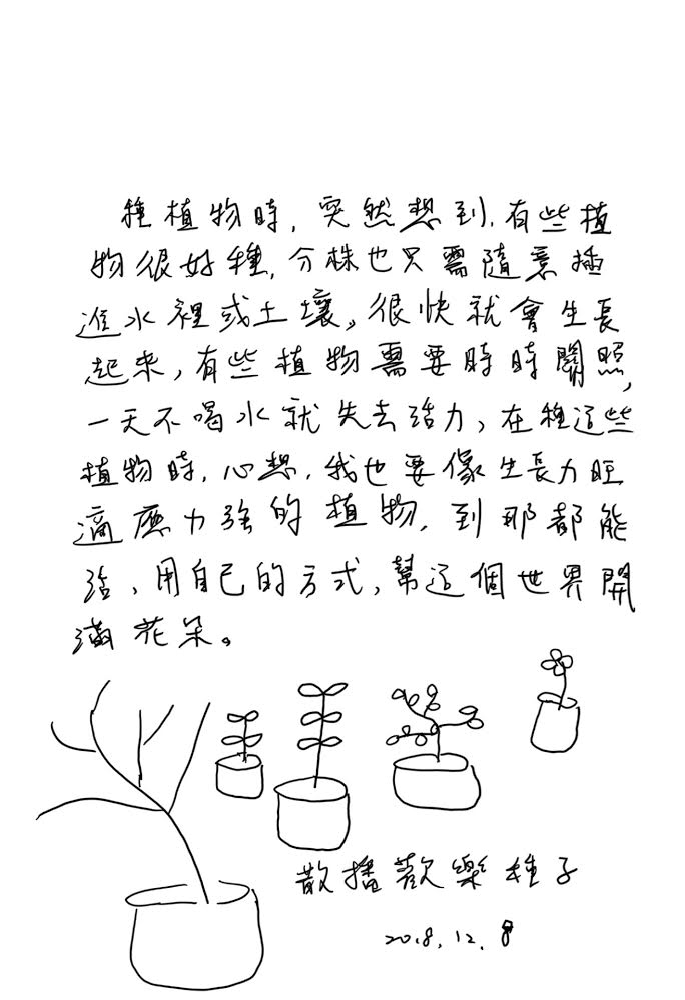 種植物時,突然想到,有些植
物很好種,分株也只需隨意插
進水裡或土壤。很快就會生長
起來,有些植物需要時時關照,
一天不喝水就失去活力,在種這些
植物時,心想,我也要像生長力旺
適應力強的植物,到那都能
活,用自己的方式,幫這個世界開
滿花朵。
散播歡樂種子
2018.12.8